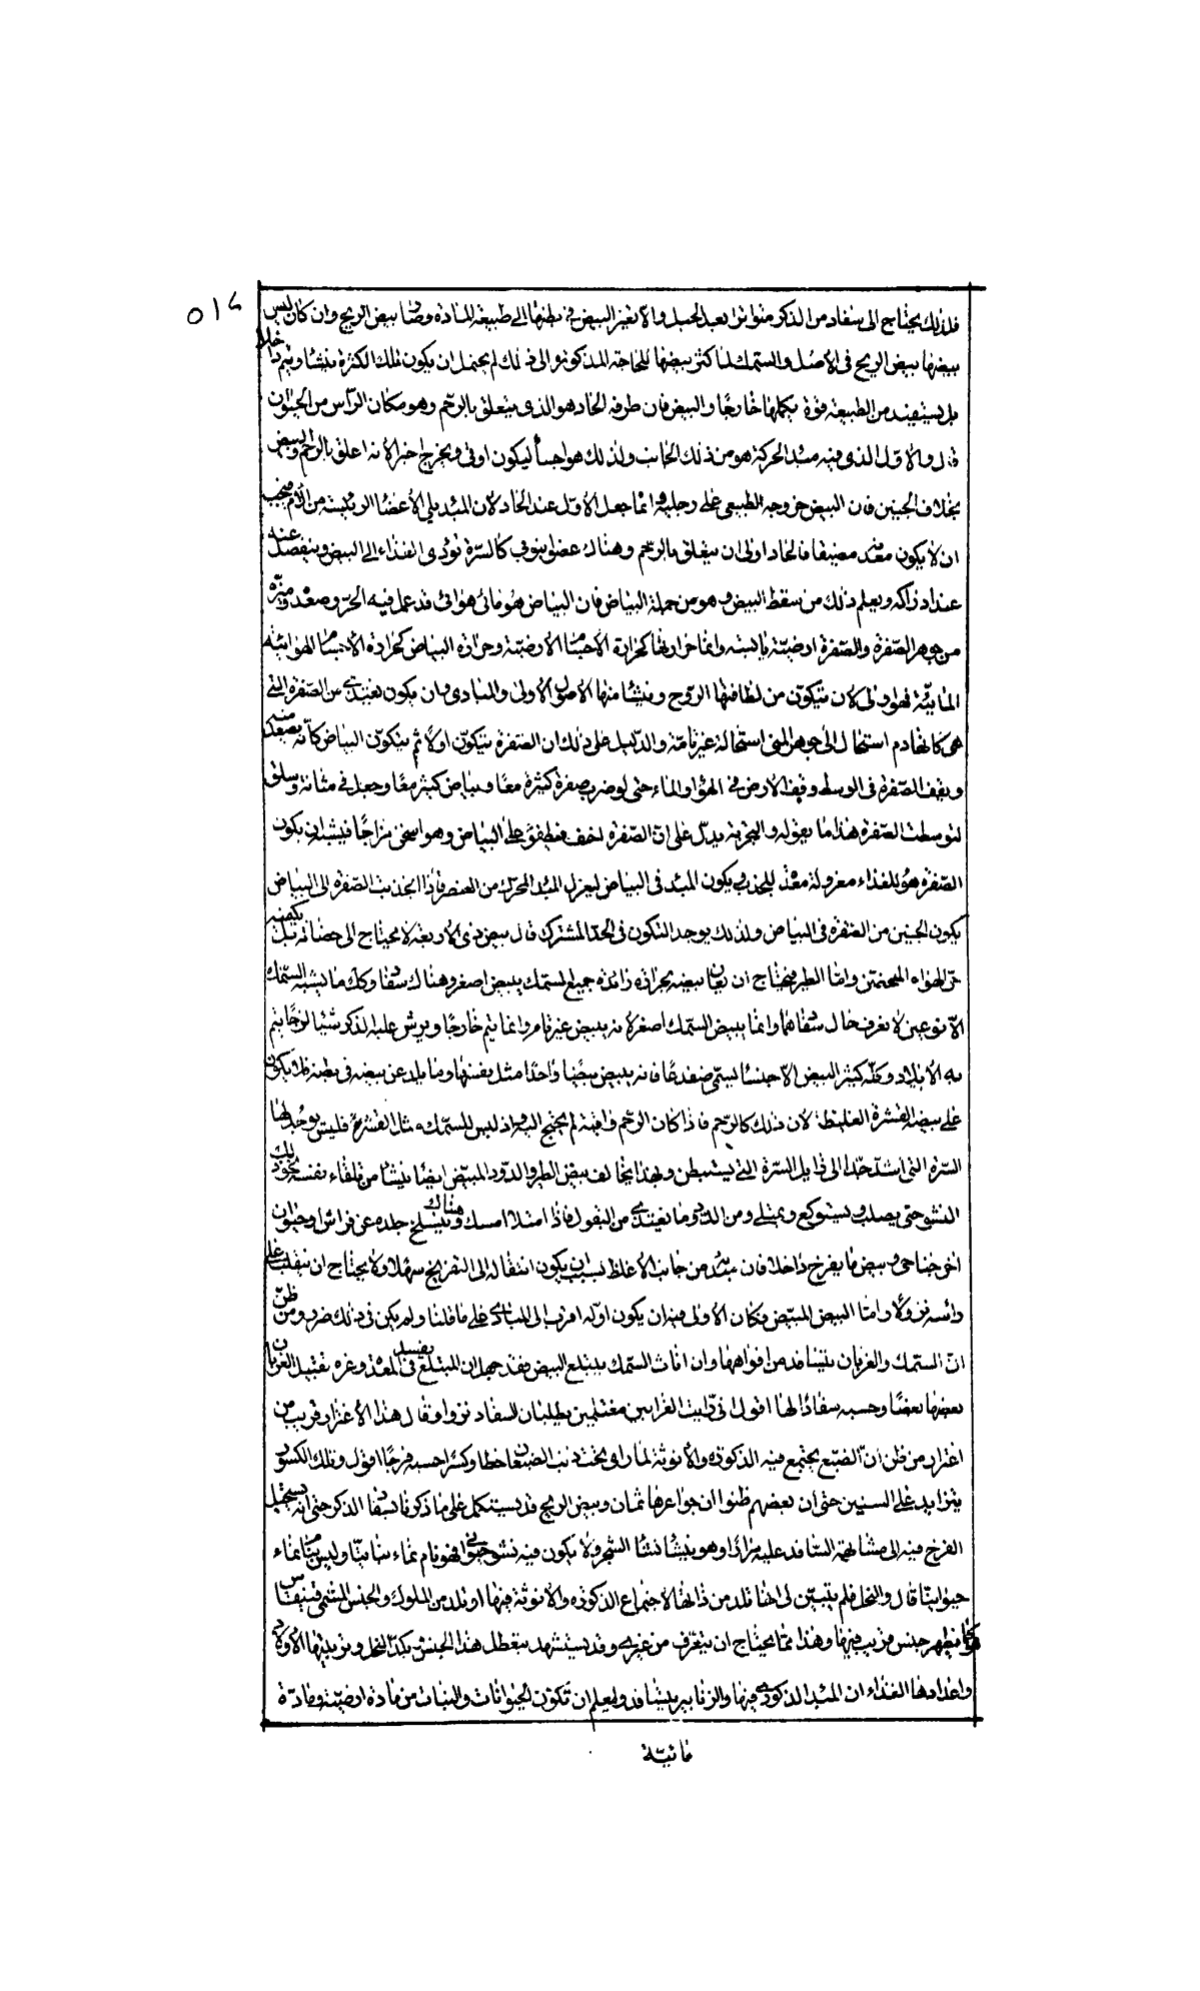 فلذلك يحتاج الى سفاد من الذكر متواتر بعد الحبل والا تغير البيض في بطنها الى طبيعة المادة وصار بيض الريح وان كان ليس
بيضها بيض الريح في الاصل والسمك لما كثر بيضها للحاجة المذكورة الى ذلك لم يحتمل ان يكون تلك الكثرة ينشا ويتم داخلا
بل يستفيد من الطبيعة قوة يكملها خارجا والبيض فان طرفه الحاد هو الذي يتعلق بالرحم وهو مكان الرأس من الحيوان
قال والاول الذي فيه مبدا الحركة هو من ذلك الجانب ولذلك هو اجسأ ليكون اوقى ويخرج اخيرا لانه اعلق بالرحم والبيض
بخلاف الجنين فان البيض خروجه الطبيعي على رجليه وانما جعل الاول عند الحاد لان المبدا يلي الاعضا الرئيسة من الام فيجب
ان لا يكون مضيقا فالحاد اولى ان يتعلق بالرحم وهناك عضو ينوب كالسرة تؤدى الغذاء الى البيض وينفصل عنه
عند ادراكه ويعلم ذلك من سقط البيض وهو من جملة البياض فان البياض هو مائي هوائي قد عمل فيه الحر وصعده وميزه
من جوهر الصفرة والصفرة ارضيتة يابسة وانما حرارتها كحرارة الاجسام الارضية وحرارة البياض كحرارة الاجسام الهوائية
المائية فهو اولى لان يتكون من لطافتها الروح وينشا منها الاصول الاولى والمبادى وان يكون يغتذى من الصفرة التي
هي كانها دم استحال الى جوهر المنى استحالة غير تامة والدليل على ذلك ان الصفرة يتكون اولا ثم يتكون البياض كانه يصعد منه
ويقف الصفرة في الوسط وقوف الارض في الهواء والماء حتى لو ضرب صفرة كثيرة معا وبياض كثير معا وجعل في مثانة وسلق
لتوسطت الصفرة هذا ما يقوله والتجربة يدل على ان الصفرة اخف فيطفو على البياض وهو اسخن مزاجا فيشبه ان يكون
الصفرة هو للغذاء معزولة معدة للجذب ويكون المبدا في البياض ليعزل المبدا المحرك من العنصر فاذا انجذبت الصفرة الى البياض
يكون الجنين من الصفرة في البياض ولذلك يوجد التكون في الحد المشترك قال بيض ذي الاربعة لا يحتاج الى حضانة بل يكفيه
حر الهواء المحتقن واما الطير فيحتاج ان يعان بيضه بحرارة زائدة جميع السمك يبيض اصغر وهناك سفاد وكذلك ما يشبه السمك
الا نوعين لا يعرف حال سفادهما وانما يبيض السمك اصغر لانه يبيض غير تام وانما يتم خارجا ويرش عليه الذكر شيئا لزجا يتم
به الايلاد وكله كثير البيض الا جنسا يسمى ضفدعا فانه يبيض بيضا واحدا مثل نفسها وما يلد عن بيضه في بطنه فلا يكون
على بيضه القشرة الغليظة لان ذلك كالرحم فاذا كان الرحم واقية لم يحتج اليه اذ ليس للسمك مثل القشرة فليس يوجد لها
السرة التي استدخل الى قابل السرة التي يستبطن وبهذا يخالف بيض الطير والدود المبيض ايضا ينشا من تلقاء نفسه بجودة تلك
النشو حتى يصلب ويستوكع ويمتلى ومن الدود ما يغتذى من البقول فاذا امتلا امسك هناك وينسلخ جلده عن فراش او حيوان
اخر جناحي وبيض ما يفرخ داخلا فان مبدئه من جانب الاغلظ بسبب ان يكون انتقاله الى التفريخ سهلا ولا يحتاج ان ينقلب على
رأسه نزولا واما البيض المبيض فكان الاولى فيه ان يكون اوله اقرب الى المبادى على ما قلنا ولم يكن في ذلك ضرر ومن ظن
ان السمك والغربان يتسافد من افواهها وان اناث السمك يبتلع البيض فقد جهل ان المبتلع يفسد في المعدة وغره تقبيل الغربان
بعضها بعضا وحسبه سفادا لها اقول اني رايت الغرابين مغتلمين يطلبان السفاد نزوا وقال هذا الاغترار قريب من
اغترار من ظن ان الضبع يجتمع فيه الذكورة والانوثة لما راى تحت ذنب الضبعان خطا وكسرا حسبه فرجا اقول وتلك الكسور
يتزايد على السنين حتى ان بعضهم ظنوا ان جواعرها ثمان وبيض الريح قد يستكمل على ما ذكرنا بسفاد الذكر حتى انه يستحيل
الفرخ فيه الى مشابهة السافد عليه مرارا وهو ينشا نشا الشجر ولا يكون فيه نشو حيواني فهو نام نماء نباتيا وليس ميتا نماء
حيوانيا قال والنحل فلم يتبين لي انها تلد من ذاتها لاجتماع الذكورة والانوثة فيها او تلد من الملوك والجنس المسمى فيفاس
كما يظهر جنس قريب فيها وهذا مما يحتاج ان يتعرف من غيري وقد يستشهد بتعطل هذا الجنس بكد النحل وتربيتها الاولاد
واعدادها الغذاء ان المبدا الذكورى فيها والزنابير يتسافد وليعلم ان تكون الحيوانات والنبات من مادة ارضية ومادة
مائية